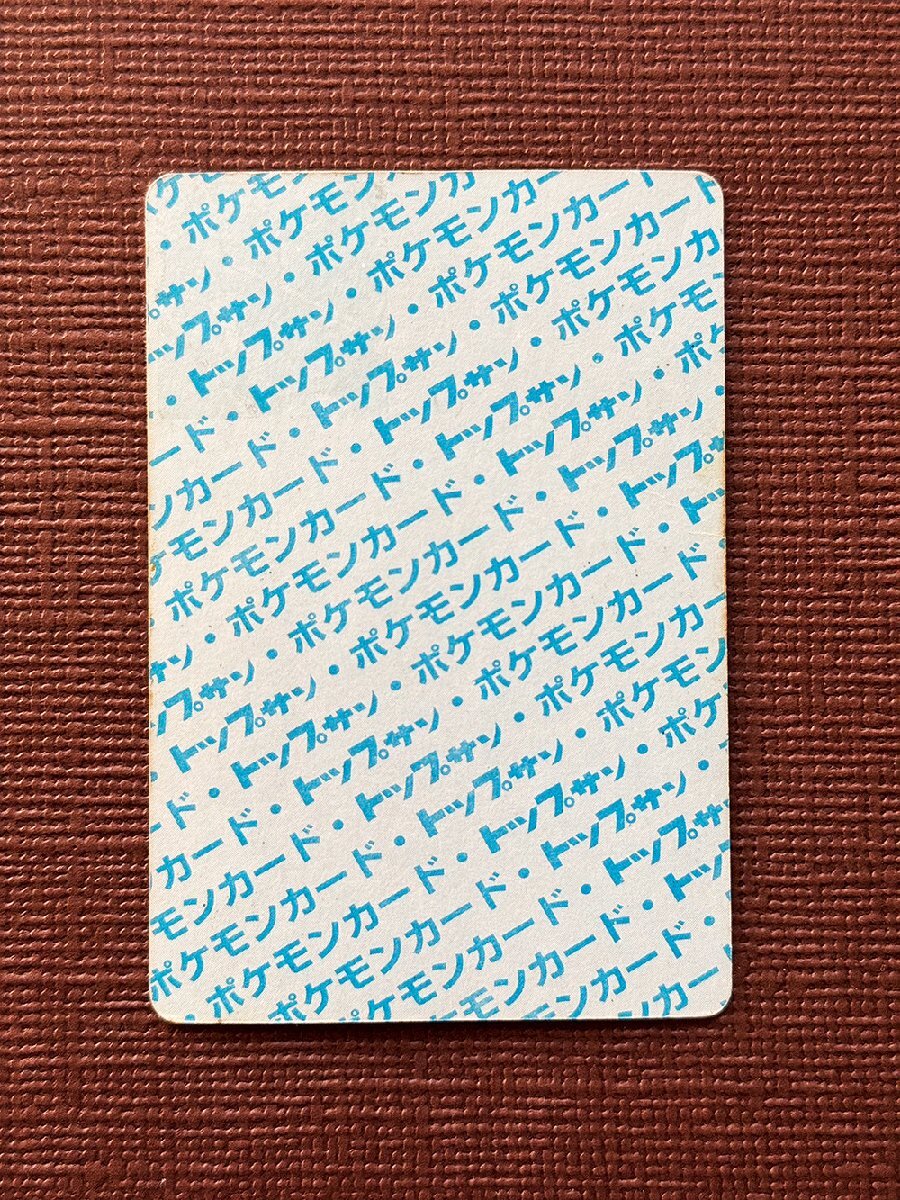 ケモ
・ポケモン
サン・ポケモン
ップサン・ポケモンカ
・トップサン・ポケモンカー
ード・トップサン・ポケモンカード
ンカード・トップサン・ポケモンカード
ケモンカード・トップサン・ポケモンカ
・ポケモンカード・トップサン・ポケモ
サン・ポケモンカード・トップサン・ポケ
トップサン・ポケモンカード・トップサン・
・トップサン・ポケモンカード・トップ
ド・トップサン・ポケモンカード・ト
カード・トップサン・ポケモンカード・
モンカード・トップサン・ポケモンカー
ポケモンカード・トップサン・ポケモン
・ポケモンカード・トップサン・ポケ
ポケモンカード・トップサン・
ケモンカード・トップサ
ンカード・トップ
カード・